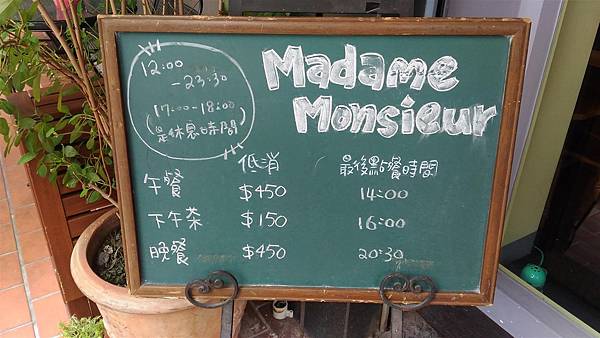 12:00
-23:30
17:00-18:00
(是休息時間)
Madame
Monsieur
低消 最後點餐時間
午餐 $450 14:00
下午茶 $150 16:00
晚餐 $450 20:30